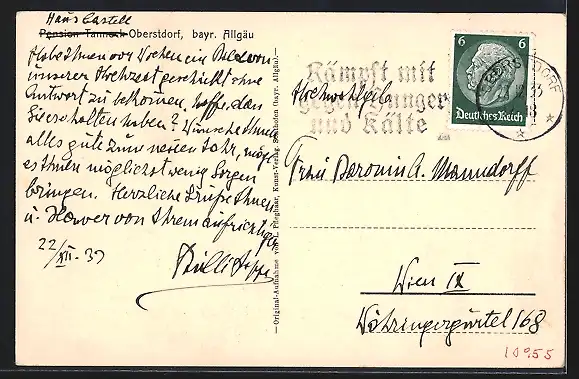 Haus Castell
Pension Tanneck Oberstdorf, bayr. Allgäu
Habe Ihnen vor Wochen ein Bild von
unserer Hochzeit geschickt ohne
Antwort zu bekommen, hoffe, dass
Sie es erhalten haben? Wünsche Ihnen
alles gute zum neuen Jahr, möge
es Ihnen möglichst wenig Sorgen
bringen. Herzliche Grüße Ihnen
u. von Ihrem aufrichtigen
22/XII.-
—Original-Aufnahme von Kunst-Verlag Sonthofen (bayr. Allgäu).—
Kämpft mit
gegen Hunger
und Kälte
6 6
Deutsches Reich
Frau Baronin A. Manndorff
Wien IX
Währingergürtel 168
10955